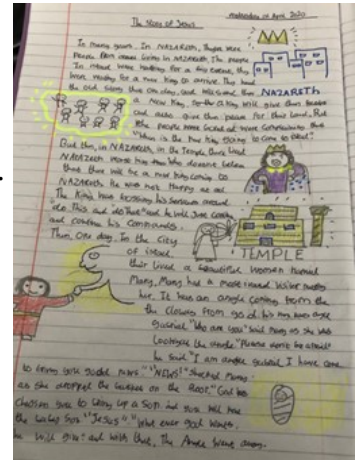 Wednesday 1st April 2020
The Story of Jesus
In many years. In NAZARETH, there were
people from away living in NAZARETH. The people
in Israel were waiting for a big event, they
were waiting for a new king to arrive. They heard
the old story that one day, god will send them
NAZARETH
a New king, so the king will give them
and also give them peace for their land. But
the people were scared and were
when is the new king going to come to Israel?
But then, in NAZARETH, in the Temple, there lived
NAZARETH. Horrid king man who doesn't believe
that there will be a new king coming to
NAZARETH. He was not Happy at all.
The King was bossing his servants around
do this and do that" and he will just
and continue his commands.
TEMPLE
Then, One day. In the City
of israel.
their lived a beautiful women named
Mary, Mary had a mysterious visitor
her. It was an angle coming from the
the clouds from god. his name was angle
gabriel "Who are you" said mary as she was
Looking at the angle "Please don't be afraid"
he said "I am angle gabriel I have come
to bring you good news." "NEWS!" Shouted Mary
as she dropped the basket on the floor. "God has
choosen you to bring up a Son. and you will name
the baby Son "Jesus"." "What ever god wants,
he will give" and with that, The Angle went away.